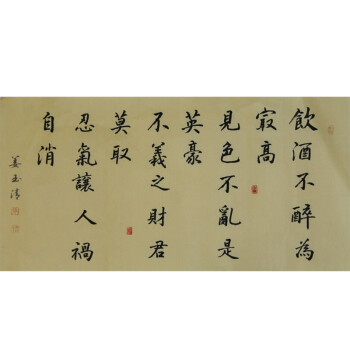 飲酒不醉為
㝡高
見色不亂是
英豪
不義之財君
莫取
忍氣讓人禍
自消
姜玉清